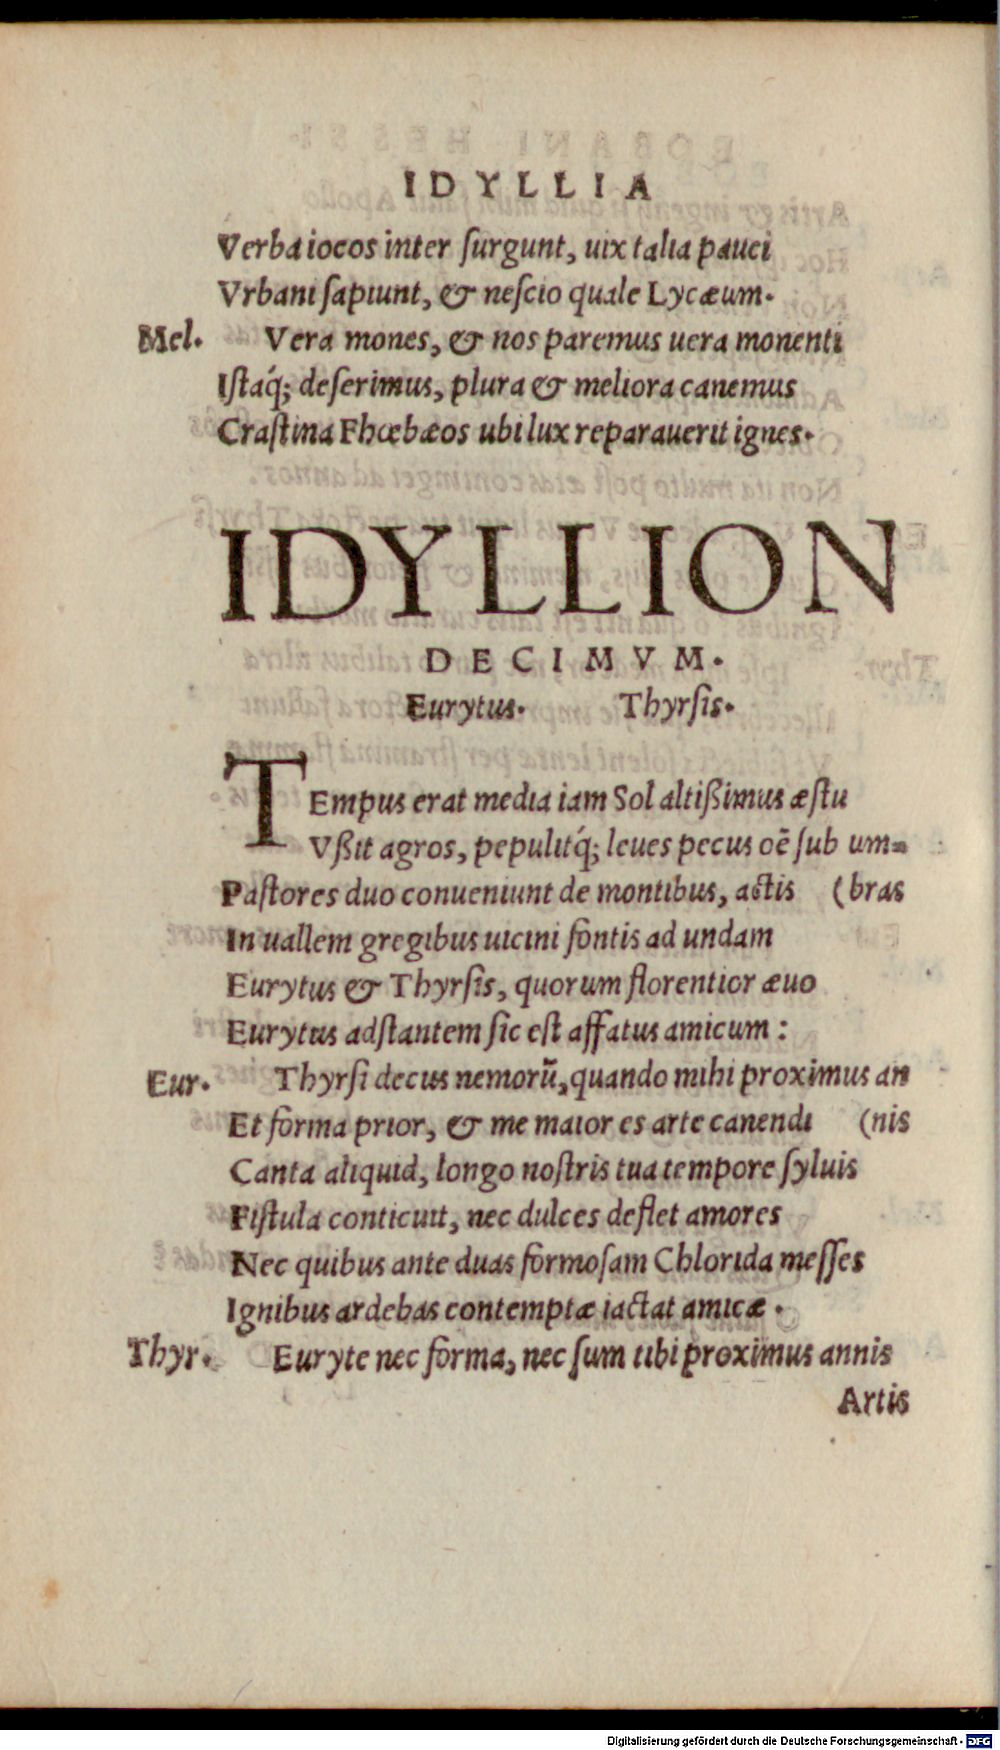 IDYLLIA
Verba iocos inter ſurgunt, uix talia pauci
Vrbani ſapiunt, & neſcio quale Lycæum.
Mel. Vera mones, & nos paremus uera monenti
Iſtaq́; deſerimus, plura & meliora canemus
Craſtina Phœbæos ubi lux reparauerit ignes.
IDYLLION
DECIMVM.
Eurytus. Thyrſis.
TEmpus erat media iam Sol altißimus æſtu
Vßit agros, pepulitq́; leues pecus oē ſub um=
Paſtores duo conueniunt de montibus, actis (bras
In uallem gregibus uicini fontis ad undam
Eurytus & Thyrſis, quorum florentior æuo
Eurytus adſtantem ſic eſt affatus amicum:
Eur. Thyrſi decus nemorū, quando mihi proximus an
Et forma prior, & me maior es arte canendi (nis
Canta aliquid, longo noſtris tua tempore ſyluis
Fiſtula conticuit, nec dulces deflet amores
Nec quibus ante duas formoſam Chlorida meſſes
Ignibus ardebas contemptæ iactat amicæ.
Thyr. Euryte nec forma, nec ſum tibi proximus annis
Artis
Digitalisierung gefördert durch die Deutsche Forschungsgemeinschaft - DFG